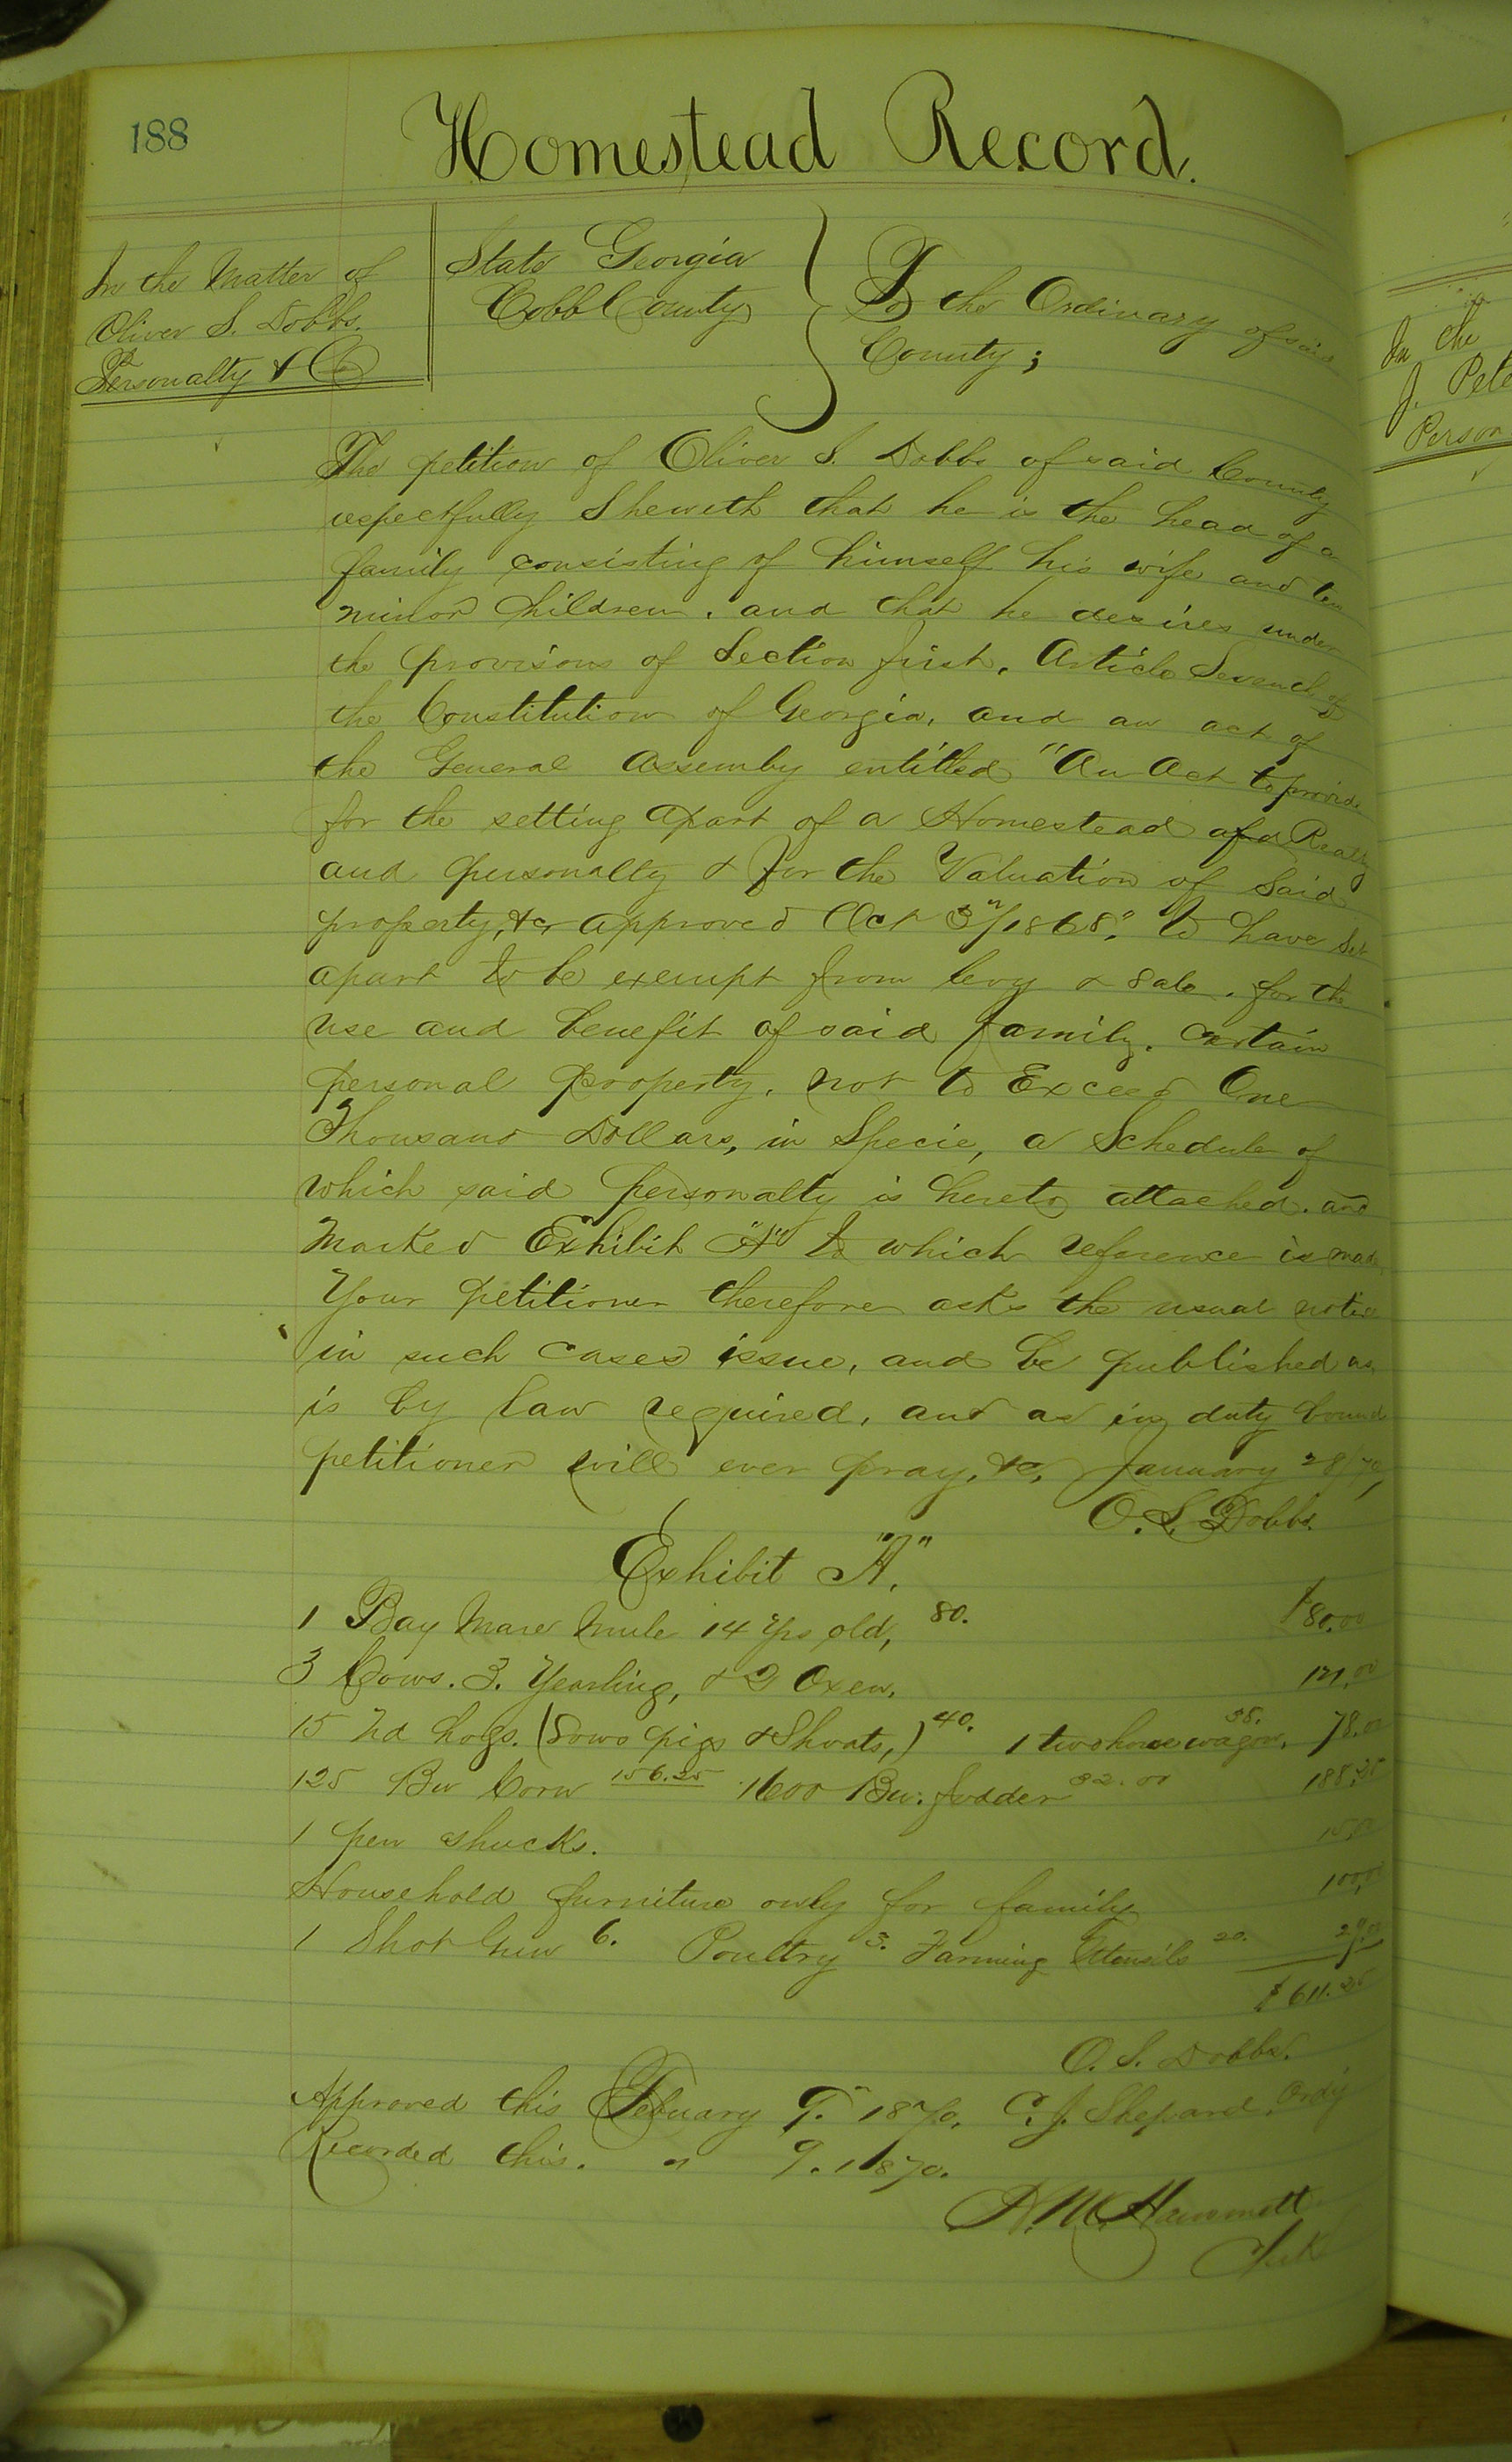 188
Homestead Record.
In the Matter of
Oliver S. Dobbs.
Personalty & C
State Georgia
Cobb County
To the Ordinary of said
County;
The petition of Oliver S. Dobbs of said County
respectfully Sheweth that he is the head of a
family consisting of himself his wife and ten
minor children. and that he desires under
the provisions of Section first, Article Seventh of
the Constitution of Georgia, and an act of
the General Assemby entitled "An Act to provide
for the setting apart of a Homestead of Realty
and personalty & for the Valuation of Said
property, &c, approved Oct 3"/1868," to have set
apart to be exempt from levy & sale, for the
use and benefit of said family, certain
personal property, not to Exceed One
Thousand Dollars, in Specie, a Schedule of
which said personalty is hereto attached. and
Marked Exhibit "A" to which reference is made
Your petitioner therefore asks the usual notice
in such cases issue, and be published as
is by law required, and as in duty bound
petitioner will ever pray, &c, January 28/70,
O. S. Dobbs.
Exhibit "A".
1 Bay Mare Mule 14 yrs old, 80. $80.00
3 Cows. 3. Yearling, & 2 Oxen. 121.00
15 hd hogs. (Sows pigs & Shoats,) 40. 1 two horse wagon, 38. 78.00
125 Bu Corn 156.25 1600 Bu. fodder 32.00 188.25
1 pen shucks. 15.00
Household furniture only for family 100.00
1 Shot Gun 6. Poultry 3. Farming Utensils 20. 29.00
$611.25
O. S. Dobbs.
Approved this Febuary 9." 1870, C. J. Shepard, Ordy
Recorded this. " 9. 1870.
H. M. Hammett
Clerk
In the
J. Pete
Person